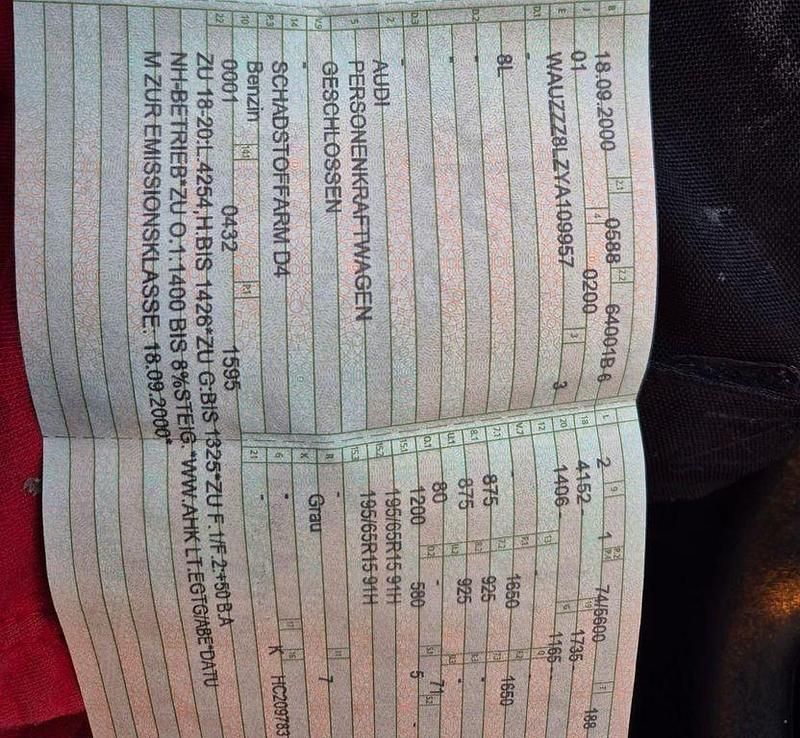 B 18.09.2000 2.1 0588 2.2 64001B-6
J 01 4 0200
E WAUZZZ8LZYA109957 3 3
D.1 -
D.2 8L
-
-
D.3 -
2 AUDI
5 PERSONENKRAFTWAGEN
GESCHLOSSEN
V.9 -
14 SCHADSTOFFARM D4
P.3 Benzin
10 0001 14.1 0432 P.1 1595
22 ZU 18-20:L.4254,H.BIS 1426*ZU G:BIS 1325*ZU F.1/F.2:+50 B.A
NH-BETRIEB*ZU O.1:1400 BIS 8%STEIG. *WW.AHK LT.EGTG/ABE*DATU
M ZUR EMISSIONSKLASSE: 18.09.2000*
L 2 9 1 P.2 P.4 74/5600 T 188
18 4152- 19 1735-
20 1406- G 1165-
12 - 13 -
V.7 - F.1 1650 F.2 1650
7.1 875 7.2 925 7.3 -
8.1 875 8.2 925 8.3 -
U.1 80 71
O.1 1200 O.2 580 S.1 5 S.2 -
15.1 195/65R15 91H
15.2 195/65R15 91H
15.3 -
R Grau 11 7
K -
6 - 17 K 16 HC209783
21 -